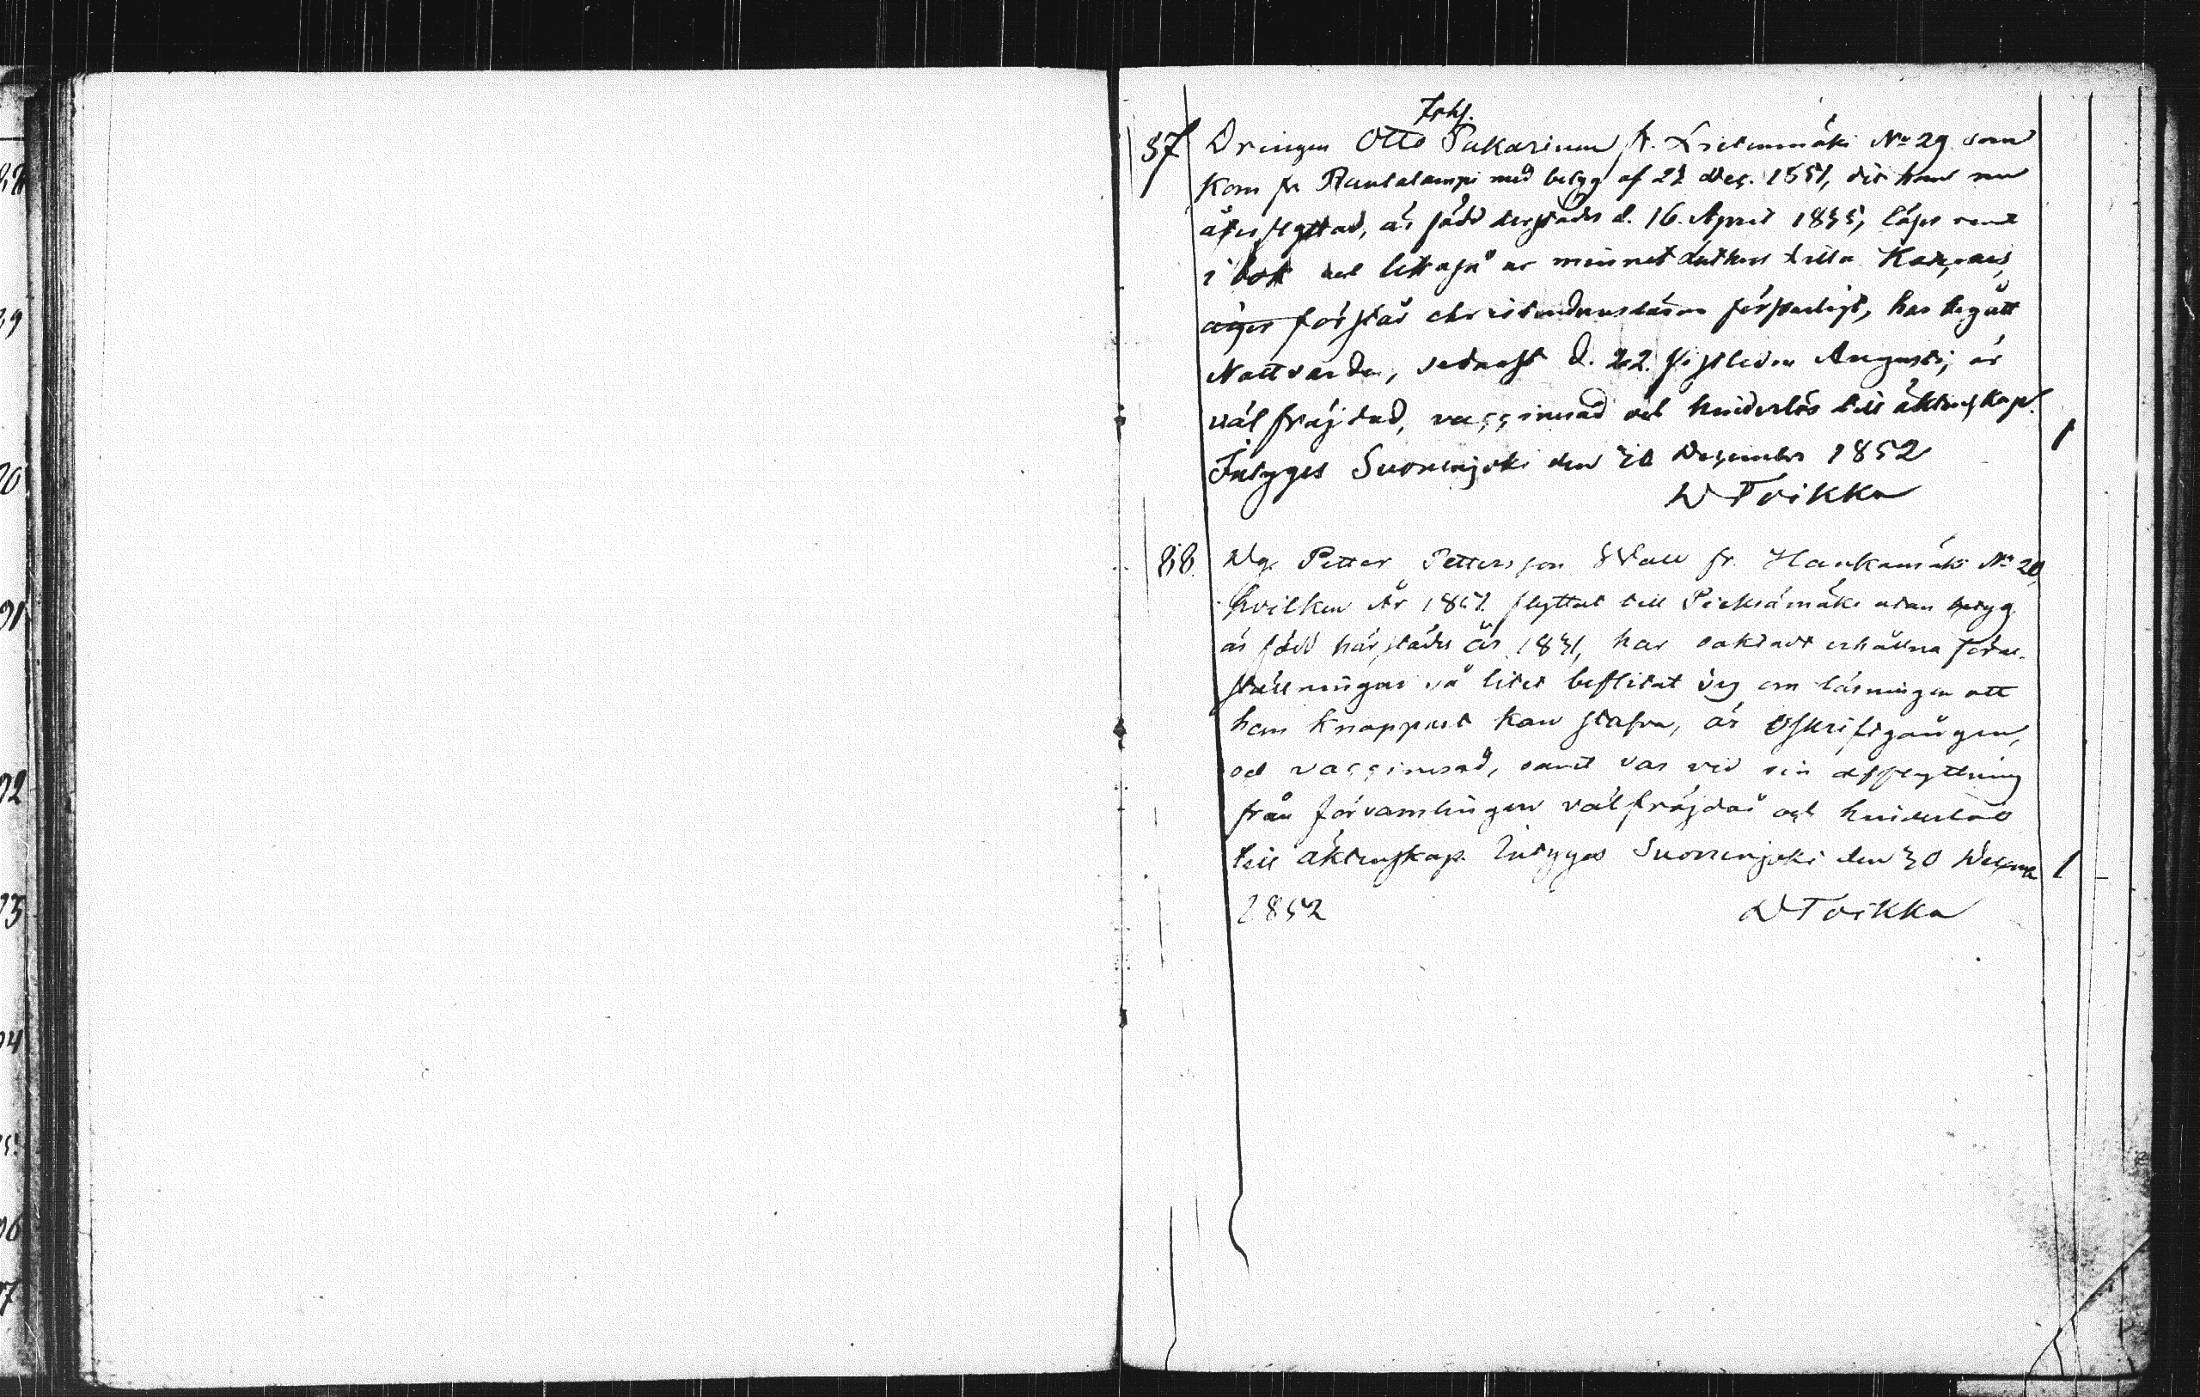 Joh.
87 Drängen Otto Pakarinen fr. Lietenmäki No 29 som
Kom fr Rautalampi med betyg af 21 Dec. 1851, dit han nu
återflyttad, är född derstädes d. 16. April 1835, läser rent
i bok och lika så ur minnet Luthers Lilla Kateces,
äger förstår christendomsläran försvarligt, har begått
Nattvarden, sednast d. 22. sistleden Augusti, är
väl fräjdad, vaccinerad och hinderlös till äktenskap. 1
Intyges Suonenjoki den 30 December 1852
D Toikka
88. Dg. Petter Pettersson Wall fr. Haukamäki No 20,
hvilken År 1851 flyttat till Pieksämäki utan betyg
är född härstädes år 1831, har oaktadt erhållna före-
ställningar så litet beflitat sig om läsningen att
han knappast kan stafva, är Oskriftgången,
och vaccinerad, samt var vid sin afflyttning
från församlingen välfräjdad och hinderlös
till äktenskap. Intyges Suonenjoki den 30 Decemb 1
1852 D Toikka
29
90
91
92
93
94
95
96
97